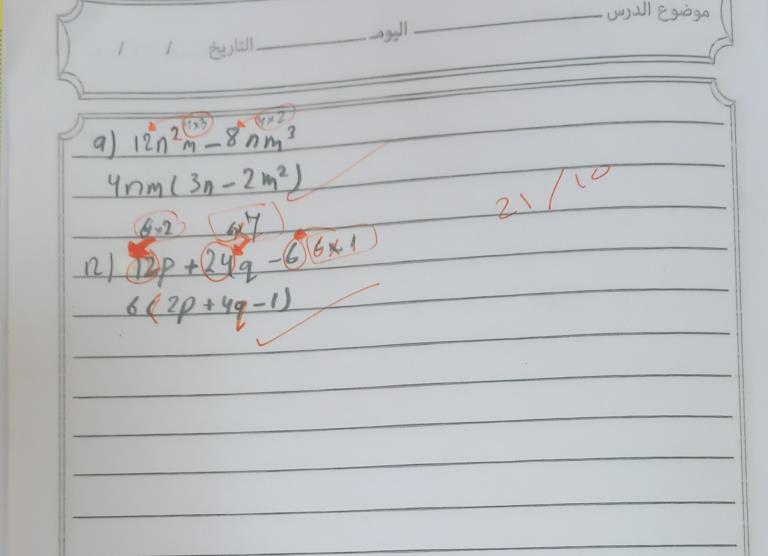 موضوع الدرس اليوم التاريخ / /
4×3 4×2
9) 12n²m - 8nm³
4nm(3n - 2m²)
21/10
6×2 6×7
12) 12p + 24q - 6 6×1
6(2p + 4q - 1)